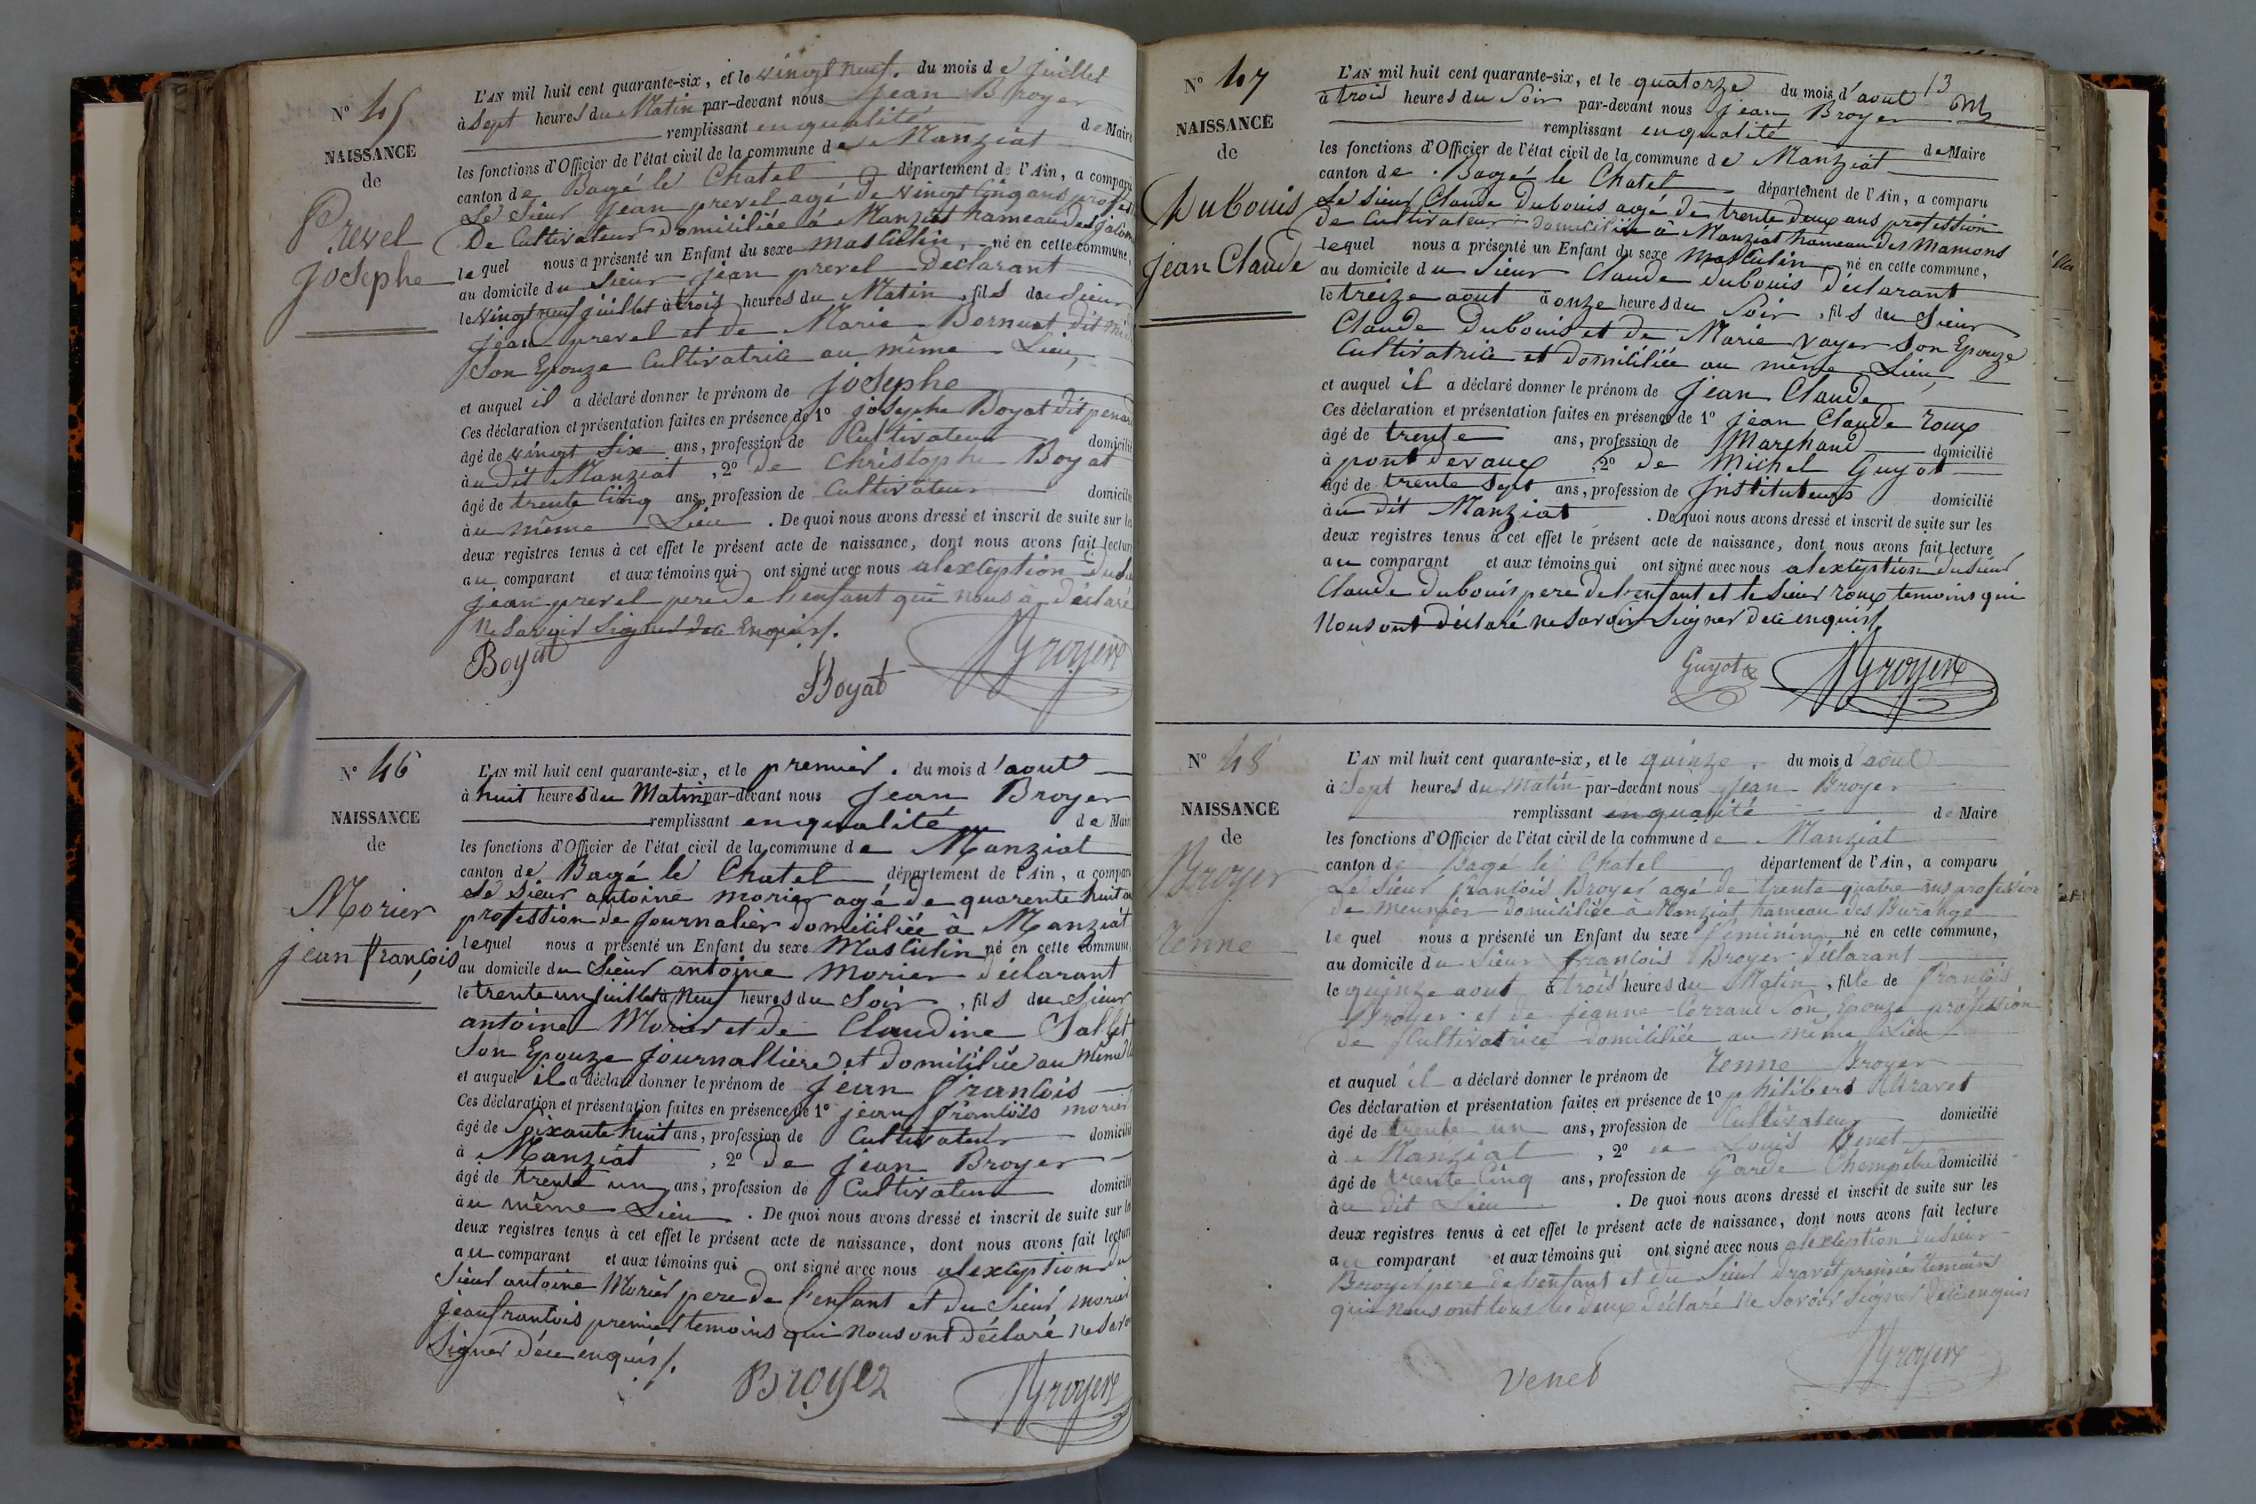 N° 45
NAISSANCE
de
Prevel
josephe
L'AN mil huit cent quarante-six, et le vingt neuf. du mois de juillet
à Sept heures du Matin par-devant nous Jean Broyer
remplissant en qualité de Maire
les fonctions d'Officier de l'état civil de la commune de Manziat
canton de Bagé le Chatel département de l'Ain, a comparu
Le Sieur Jean prevel agé de vingt cinq ans profes
De Cultivateur domiciliée à Manziat hameau des
lequel nous a présenté un Enfant du sexe masculin, né en cette commune,
au domicile du Sieur jean prevel déclarant
le vingt neuf juillet à trois heures du Matin, fils du Sieur
jean prevel et de Marie Bornuat dit
Son Epouze Cultivatrice au même Lieu,
et auquel il a déclaré donner le prénom de josephe
Ces déclaration et présentation faites en présence de 1° josephe Boyat dit
âgé de vingt Six ans, profession de Cultivateur domicilié
à u dit Manziat, 2° de Christophe Boyat
âgé de trente cinq ans, profession de Cultivateur domicilié
à u même Lieu. De quoi nous avons dressé et inscrit de suite sur les
deux registres tenus à cet effet le présent acte de naissance, dont nous avons fait lecture
au comparant et aux témoins qui ont signé avec nous alexception du
jean prevel pere de l'enfant qui nous a déclaré
Ne Savoir Signer de ce Enquis/.
Boyat
Boyat
JBroyer
N° 46
NAISSANCE
de
Morier
jean françois
L'AN mil huit cent quarante-six, et le premier. du mois d'aout
à huit heures du Matin par-devant nous Jean Broyer
remplissant en qualité de Maire
les fonctions d'Officier de l'état civil de la commune de Manziat
canton de Bagé le Chatel département de l'Ain, a comparu
Le Sieur antoine morier agé de quarente huit an
profession de journalier domiciliée à Manziat
lequel nous a présenté un Enfant du sexe Masculin né en cette commune,
au domicile du Sieur antoine morier déclarant
le trente un juillet à Neuf heures du Soir, fils du Sieur
antoine Morier et de Claudine Sallet
Son Epouze journalliere et domiciliée au même
et auquel il a déclaré donner le prénom de jean francois
Ces déclaration et présentation faites en présence de 1° jean francois morier
âgé de Soixante huit ans, profession de Cultivateur domicilié
à Manziat, 2° de jean Broyer
âgé de trente un ans, profession de Cultivateur domicilié
à u même Lieu. De quoi nous avons dressé et inscrit de suite sur les
deux registres tenus à cet effet le présent acte de naissance, dont nous avons fait lecture
au comparant et aux témoins qui ont signé avec nous alexception du
Sieur antoine Morier pere de l'enfant et du Sieur morier
jean francois premier temoins qui nous ont déclaré ne savoir
Signer de ce enquis/.
Broyer
JBroyer
13
N° 47
NAISSANCE
de
Dubouis
jean Claude
L'AN mil huit cent quarante-six, et le quatorze du mois d'aout
à trois heures du Soir par-devant nous Jean Broyer
remplissant en qualité de Maire
les fonctions d'Officier de l'état civil de la commune de Manziat
canton de Bagé le Chatel département de l'Ain, a comparu
Le Sieur Claude Dubouis agé de trente deux ans profession
De Cultivateur domiciliée à Manziat hameau des Mamons
lequel nous a présenté un Enfant du sexe Masculin, né en cette commune,
au domicile du Sieur Claude Dubouis déclarant
le treize aout à onze heures du Soir, fils du Sieur
Claude Dubouis et de Marie Voyer Son Epouze
Cultivatrice et domiciliée au même Lieu,
et auquel il a déclaré donner le prénom de jean Claude
Ces déclaration et présentation faites en présence de 1° jean Claude roux
âgé de trente ans, profession de Marchand domicilié
à pont de vaux, 2° de Michel Guyot
âgé de trente Sept ans, profession de Instituteurs domicilié
à u dit Manziat. De quoi nous avons dressé et inscrit de suite sur les
deux registres tenus à cet effet le présent acte de naissance, dont nous avons fait lecture
au comparant et aux témoins qui ont signé avec nous alexception du Sieur
Claude Dubouis pere de l'enfant et le Sieur roux temoins qui
Nous ont déclaré ne Savoir Signer de ce enquis/.
Guyot
JBroyer
N° 48
NAISSANCE
de
Broyer
renne
L'AN mil huit cent quarante-six, et le quinze. du mois d'aout
à Sept heures du Matin par-devant nous jean Broyer
remplissant en qualité de Maire
les fonctions d'Officier de l'état civil de la commune de Manziat
canton de Bagé le Chatel département de l'Ain, a comparu
Le Sieur françois Broyer agé de trente quatre ans profession
de meunier domiciliée à Manziat, hameau des Burange
lequel nous a présenté un Enfant du sexe feminin, né en cette commune,
au domicile du Sieur francois Broyer déclarant
le quinze aout à trois heures du Matin, fille de francois
Broyer et de jeanne Corrand Son Epouze profession
de Cultivatrice domiciliée au même Lieu
et auquel il a déclaré donner le prénom de renne Broyer
Ces déclaration et présentation faites en présence de 1° philibert
âgé de trente un ans, profession de Cultivateur domicilié
à Manziat, 2° de Louis Venet
âgé de trente cinq ans, profession de Garde Champêtre domicilié
à u dit Lieu. De quoi nous avons dressé et inscrit de suite sur les
deux registres tenus à cet effet le présent acte de naissance, dont nous avons fait lecture
au comparant et aux témoins qui ont signé avec nous alexception du Sieur
Broyer pere de l'enfant et du Sieur premier temoins
qui nous ont tous les deux déclaré ne Savoir Signer de ce enquis
Venet
JBroyer